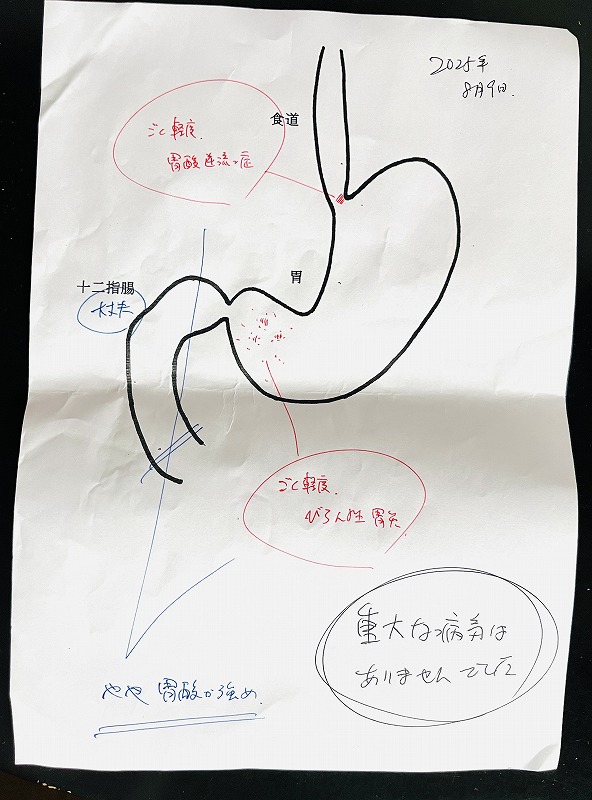 2025年
8月9日.
食道
ごく軽度.
胃酸逆流症
胃
十二指腸
大丈夫
ごく軽度.
びらん性胃炎
重大な病気は
ありませんでした
やや 胃酸が強め.